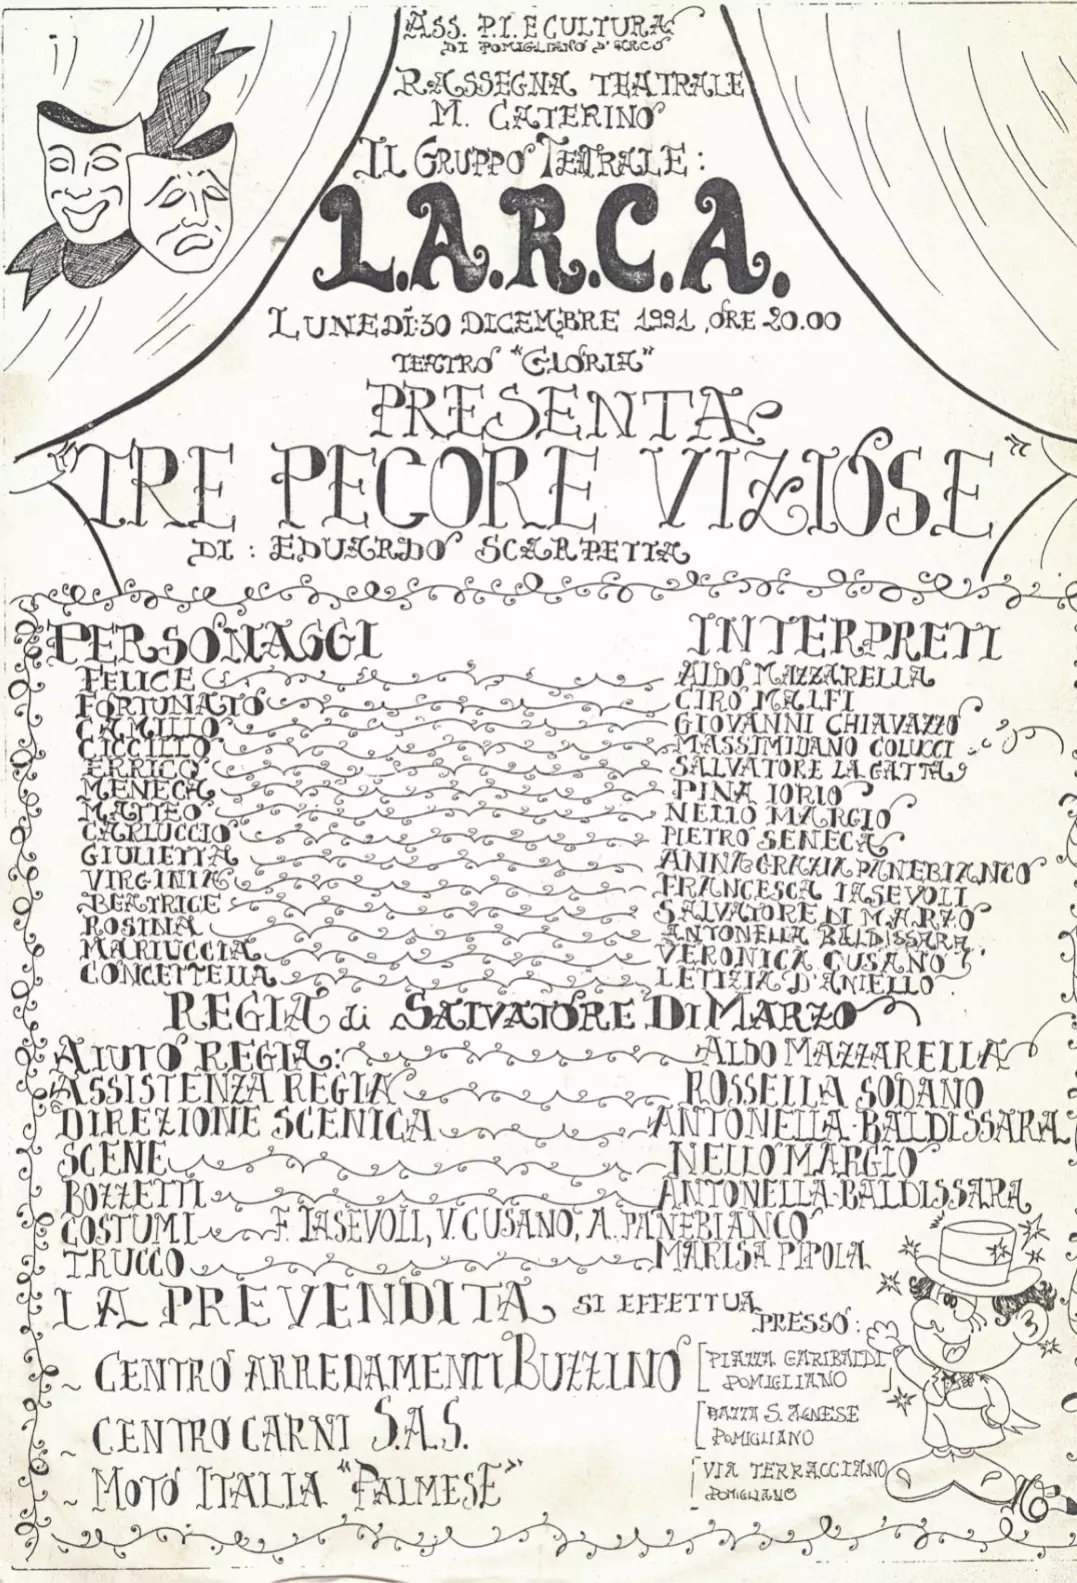 ASS. P.I. E CULTURA
DI POMIGLIANO D'ARCO
RASSEGNA TEATRALE
M. CATERINO
IL GRUPPO TEATRALE:
L.A.R.C.A.
LUNEDÌ: 30 DICEMBRE 1991, ORE 20.00
TEATRO "GLORIA"
PRESENTA
"TRE PECORE VIZIOSE"
DI: EDUARDO SCARPETTA
PERSONAGGI INTERPRETI
FELICE ALDO MAZZARELLA
FORTUNATO CIRO MALFI
CAMILLO GIOVANNI CHIAVAZZO
CICCILLO MASSIMILIANO COLUCCI
ERRICO SALVATORE LA GATTA
MENECA PINA IORIO
MATTEO NELLO MARGIO
CARLUCCIO PIETRO SENECA
GIULIETTA ANNA GRAZIA PANEBIANCO
VIRGINIA FRANCESCA IASEVOLI
BEATRICE SALVATORE DI MARZO
ROSINA ANTONELLA BALDISSARA
MARIUCCIA VERONICA CUSANO
CONCETTELLA LETIZIA D'ANIELLO
REGIA di SALVATORE DI MARZO
AIUTO REGIA: ALDO MAZZARELLA
ASSISTENZA REGIA ROSSELLA SODANO
DIREZIONE SCENICA ANTONELLA BALDISSARA
SCENE NELLO MARGIO
BOZZETTI ANTONELLA BALDISSARA
COSTUMI F. IASEVOLI, V. CUSANO, A. PANEBIANCO
TRUCCO MARISA PIPOLA
LA PREVENDITA SI EFFETTUA
PRESSO:
~ CENTRO ARREDAMENTI BUZZINO [PIAZZA GARIBALDI
POMIGLIANO
~ CENTRO CARNI S.A.S. [PIAZZA S. AGNESE
POMIGLIANO
~ MOTO ITALIA "PALMESE" [VIA TERRACCIANO
POMIGLIANO